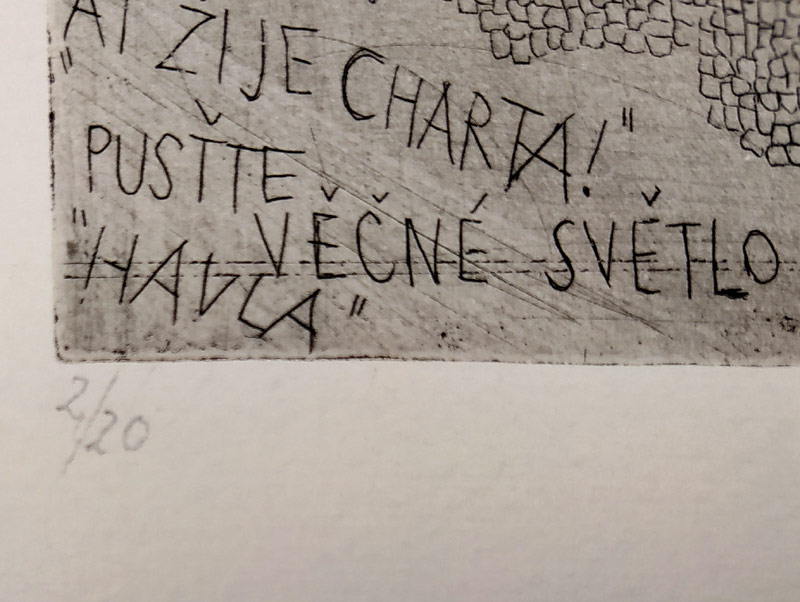 AŤ ŽIJE CHARTA!"
"PUSŤTE
"HAVLA"
VĚČNÉ SVĚTLO
2/20